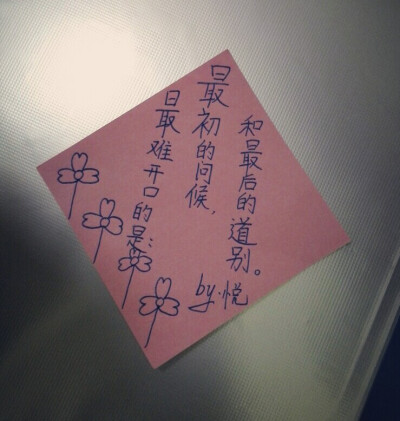 最难开口的是：
最初的问候，
和最后的道别。
by.悦